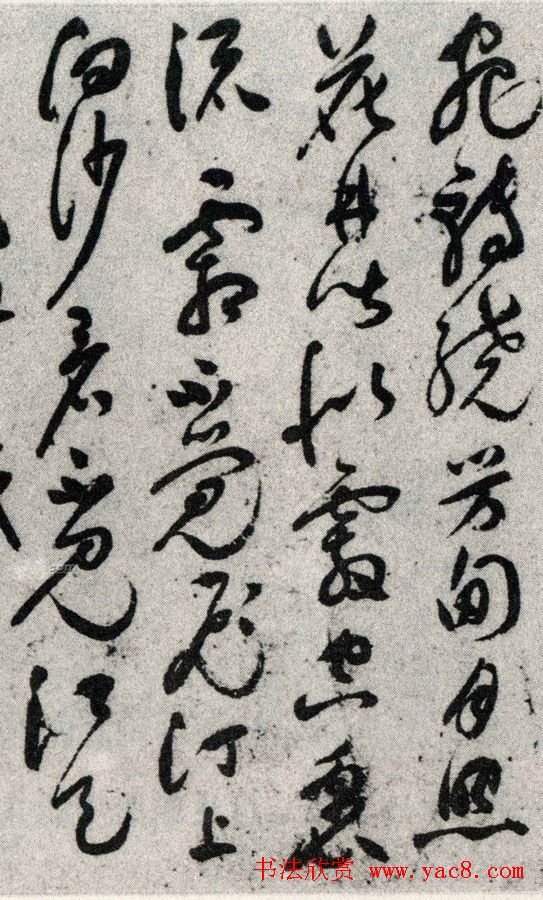 宛轉繞芳甸月照
花林皆似霰空裏
流霜不覺飛汀上
白沙看不見江天
书法欣赏 www.yac8.com